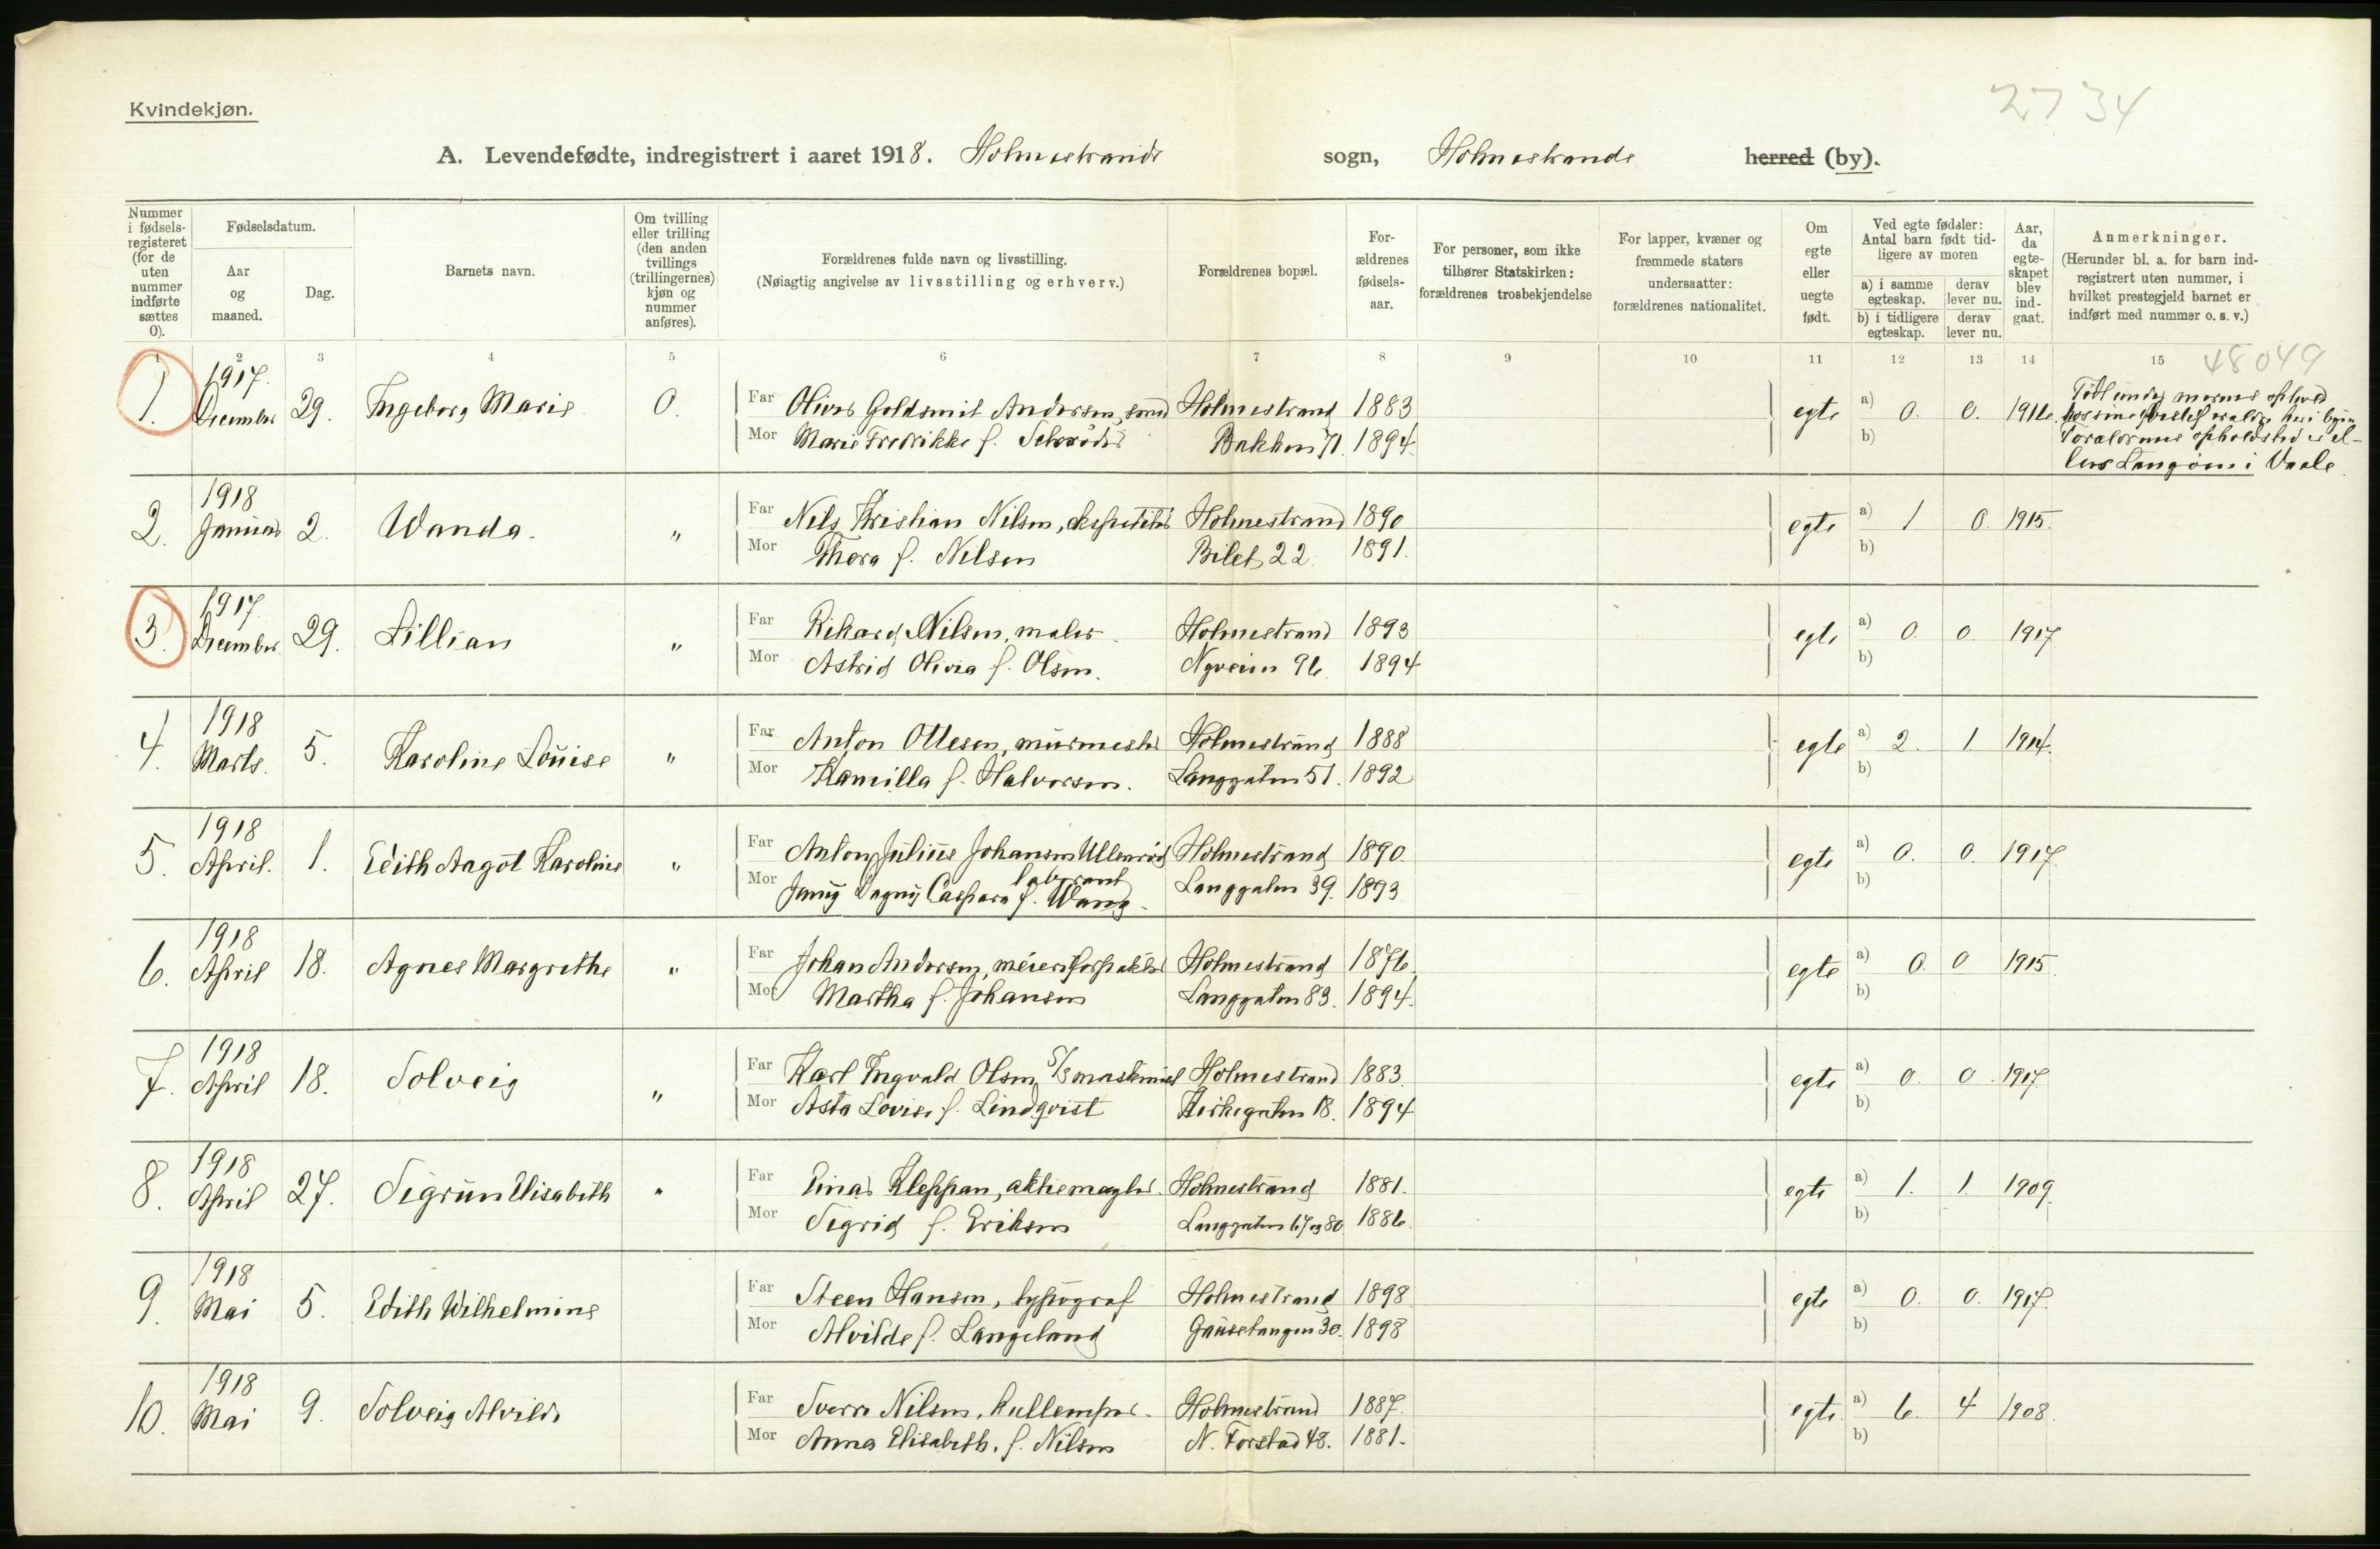 Kvindekjøn.
2734
A. Levendefødte, indregistrert i aaret 1918. Holmestrands sogn, Holmestrands herred (by).
Nummer i fødsels-registeret (for de uten nummer indførte sættes 0).
Fødselsdatum.
Aar og maaned.
Dag.
Barnets navn.
Om tvilling eller trilling (den anden tvillings (trillingernes) kjøn og nummer anføres).
Forældrenes fulde navn og livsstilling.
(Nøiagtig angivelse av livsstilling og erhverv.)
Forældrenes bopæl.
For-ældrenes fødsels-aar.
For personer, som ikke tilhører Statskirken: forældrenes trosbekjendelse
For lapper, kvæner og fremmede staters undersaatter: forældrenes nationalitet.
Om egte eller uegte født.
Ved egte fødsler: Antal barn født tid-ligere av moren
a) i samme egteskap.
derav lever nu.
b) i tidligere egteskap.
derav lever nu.
Aar, da egte-skapet blev ind-gaat.
Anmerkninger.
(Herunder bl. a. for barn ind-registrert uten nummer, i hvilket prestegjeld barnet er indført med nummer o. s. v.)
1 2 3 4 5 6 7 8 9 10 11 12 13 14 15
48049
1. 1917. December 29. Ingeborg Marie 0.
Far Oliver Goldsmit Andersen, smed Holmestrand 1883 egte a) 0. 0. 1916.
Mor Marie Fredrikke f. Schrøder Bakken 71. 1894. b)
Født under morens ophold
Forældrenes opholdsted er el-
lers Langøen i Vaale
2. 1918 Januar 2. Wanda. "
Far Nils Kristian Nilsen, ekspeditør Holmestrand 1890 egte a) 1 0. 1915.
Mor Thora f. Nilsen Bilet 22. 1891. b)
3. 1917. December 29. Lillian "
Far Rikard Nilsen, maler Holmestrand 1893 egte a) 0. 0. 1917
Mor Astrid Olivia f. Olsen. Nyveien 96. 1894 b)
4. 1918 Marts. 5. Karoline Louise "
Far Anton Ottesen, murmester Holmestrand 1888 egte a) 2. 1 1914.
Mor Kamilla f. Halvorsen. Langgaten 51. 1892 b)
5. 1918 April. 1. Edith Aagot Karoline "
Far Anton Julius Johansen Ullenrød Holmestrand 1890. egte a) 0. 0. 1917.
laborant
Mor Jenny Dagny Caspara f. Wang. Langgaten 39. 1893 b)
6. 1918 April 18. Agnes Margrethe "
Far Johan Andersen, meieriforpakter Holmestrand 1876. egte a) 0. 0 1915.
Mor Martha f. Johansen Langgaten 83. 1894. b)
7. 1918 April 18. Solveig "
Far Karl Ingvald Olsen, S/S maskinist Holmestrand 1883. egte a) 0. 0. 1917
Mor Asta Lovise f. Lindqvist Kirkegaten 18. 1894 b)
8. 1918 April 27. Sigrun Elisabeth "
Far Einar Kleppan, aktiemægler. Holmestrand 1881. egte a) 1. 1. 1909.
Mor Sigrid f. Eriksen Langgaten 67 og 80. 1886. b)
9. 1918 Mai 5. Edith Wilhelmine
Far Steen Hansen, typograf Holmestrand 1898 egte a) 0. 0. 1917.
Mor Alvilde f. Langeland Gausetangen 30. 1898 b)
10. 1918 Mai 9. Solveig Alvilde
Far Sverre Nilsen, kullemper. Holmestrand 1887. egte a) 6. 4 1908.
Mor Anna Elisabeth. f. Nilsen N. Forstad 48. 1881. b)